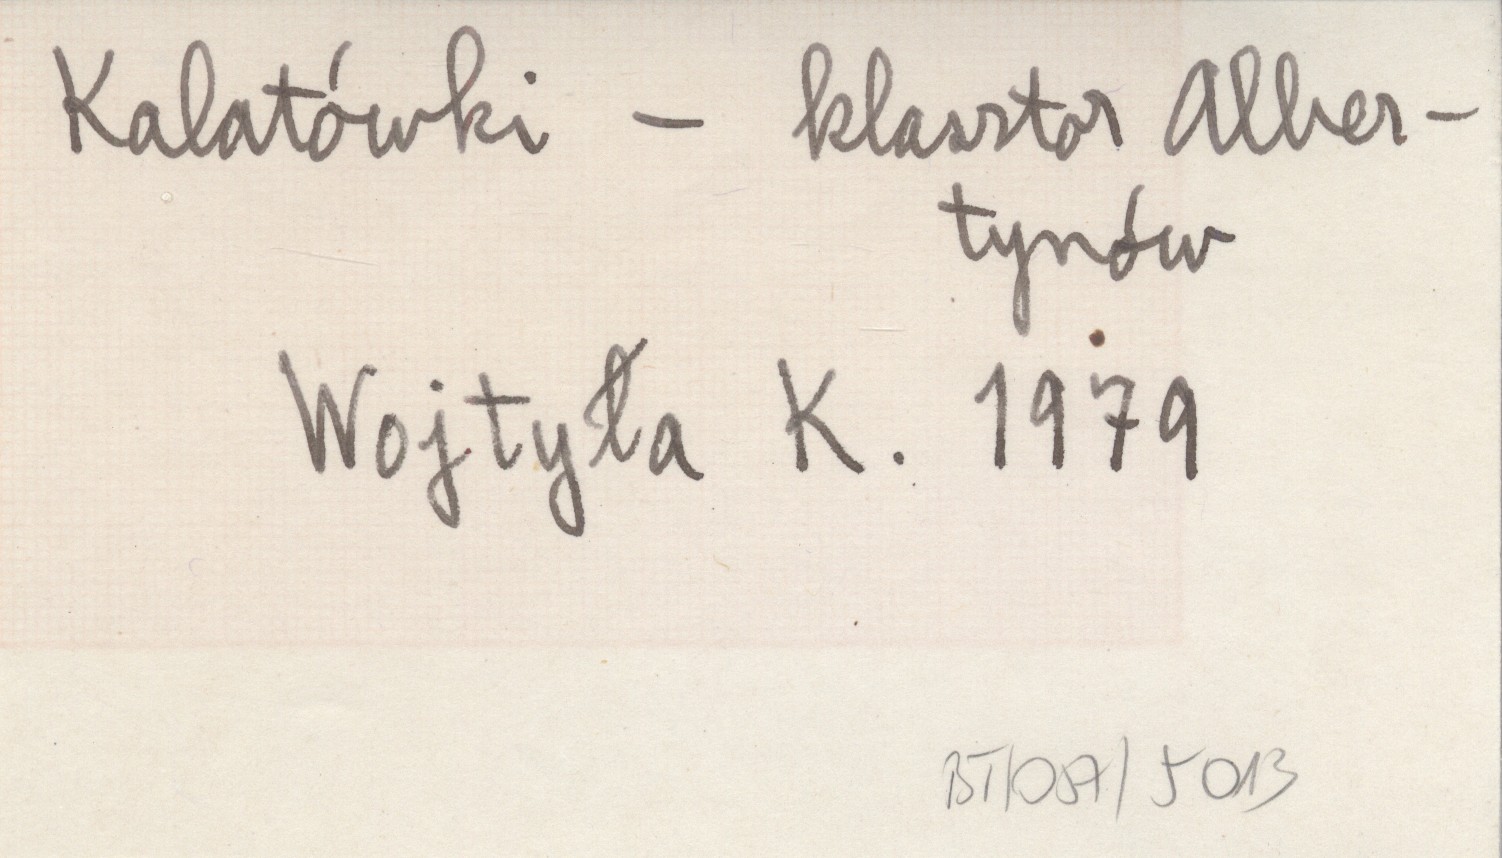 Kalatówki — klasztor Alber-
tynów
Wojtyła K. 1979
BT/087/5013